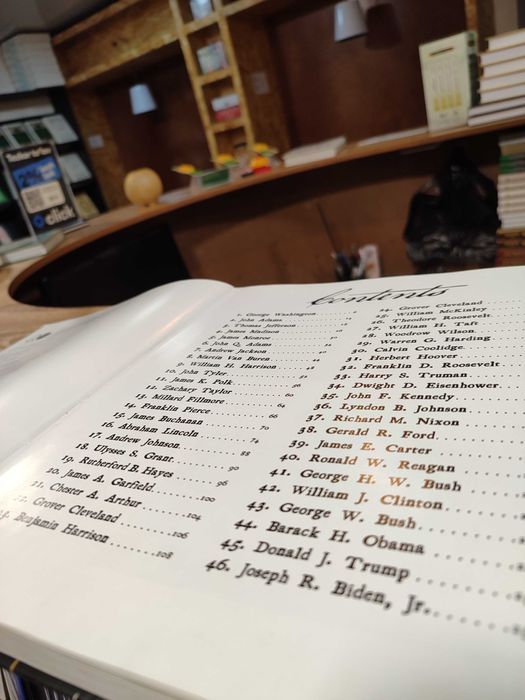 Contents
1. George Washington
2. John Adams
3. Thomas Jefferson
4. James Madison
5. James Monroe
6. John Q. Adams
7. Andrew Jackson
8. Martin Van Buren
9. William H. Harrison
10. John Tyler
11. James K. Polk
12. Zachary Taylor
13. Millard Fillmore 64
14. Franklin Pierce 66
15. James Buchanan 70
16. Abraham Lincoln 74
17. Andrew Johnson 88
18. Ulysses S. Grant 90
19. Rutherford B. Hayes 96
20. James A. Garfield 100
21. Chester A. Arthur 104
22. Grover Cleveland 106
23. Benjamin Harrison 108
24. Grover Cleveland
25. William McKinley
26. Theodore Roosevelt
27. William H. Taft
28. Woodrow Wilson
29. Warren G. Harding
30. Calvin Coolidge
31. Herbert Hoover
32. Franklin D. Roosevelt
33. Harry S. Truman
34. Dwight D. Eisenhower
35. John F. Kennedy
36. Lyndon B. Johnson
37. Richard M. Nixon
38. Gerald R. Ford
39. James E. Carter
40. Ronald W. Reagan
41. George H. W. Bush
42. William J. Clinton
43. George W. Bush
44. Barack H. Obama
45. Donald J. Trump
46. Joseph R. Biden, Jr.
click